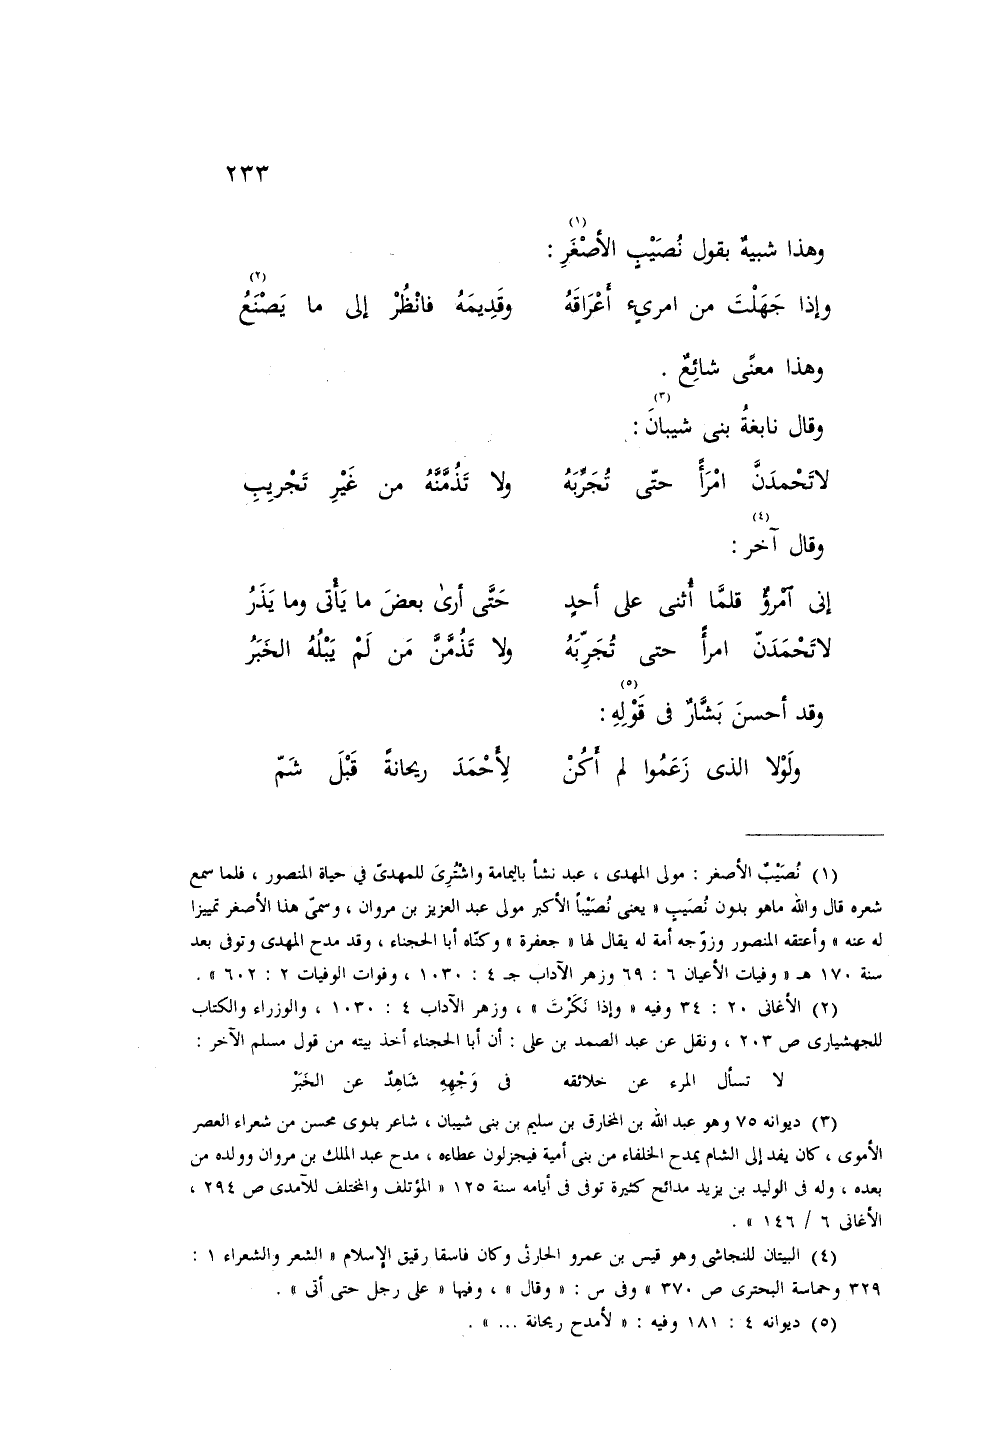 ٢٣٣
وهذا شبيهٌ بقول نُصَيْبٍ الأصْغَرِ (١) :
وإذا جَهَلْتَ من امرىءٍ أَعْرَاقَهُ وقَدِيمَهُ فانْظُرْ إلى ما يَصْنَعُ (٢)
وهذا معنًى شائِعٌ .
وقال نابغةُ بنى شيبانَ (٣) :
لاتَحْمدَنَّ امْرَأً حتّى تُجَرِّبَهُ ولا تَذُمَّنَّهُ من غَيْرِ تَجْرِيبِ
وقال آخر (٤) :
إنى آمْرؤٌ قلمَّا أُثنى على أحدٍ حَتَّى أرىٰ بعضَ ما يَأْتى وما يَذَرُ
لاتَحْمَدَنّ امرأً حتى تُجَرِّبَهُ ولا تَذُمَّنَّ مَن لَمْ يَبْلُهُ الخَبَرُ
وقد أحسنَ بَشَّارٌ فى قَوْلِهِ (٥) :
ولَوْلا الذى زَعَمُوا لم أَكُنْ لِأَحْمَدَ ريحانةً قَبْلَ شَمّ
(١) نُصَيْبٌ الأصغر : مولى المهدى ، عبد نشأ باليمامة واشْتُرِىَ للمهدىّ في حياة المنصور ، فلما سمع
شعره قال والله ماهو بدون نُصَيبٍ « يعنى نُصَيْباً الأكبر مولى عبد العزيز بن مروان ، وسمىّ هذا الأصغر تمييزا
له عنه » وأعتقه المنصور وزوّجه أمة له يقال لها « جعفرة » وكنّاه أبا الحجناء ، وقد مدح المهدى وتوفى بعد
سنة ١٧٠ هـ « وفيات الأعيان ٦ : ٦٩ وزهر الآداب جـ ٤ : ١٠٣٠ ، وفوات الوفيات ٢ : ٦٠٢ » .
(٢) الأغانى ٢٠ : ٣٤ وفيه « وإذا نَكَرْتَ » ، وزهر الآداب ٤ : ١٠٣٠ ، والوزراء والكتاب
للجهشيارى ص ٢٠٣ ، ونقل عن عبد الصمد بن على : أن أبا الحجناء أخذ بيته من قول مسلم الآخر :
لا تسأل المرء عن خلائقه فى وَجْهِهِ شَاهِدٌ عن الخَبَرْ
(٣) ديوانه ٧٥ وهو عبد الله بن المخارق بن سليم بن بنى شيبان ، شاعر بدوى محسن من شعراء العصر
الأموى ، كان يفد إلى الشام يمدح الخلفاء من بنى أمية فيجزلون عطاءه ، مدح عبد الملك بن مروان وولده من
بعده ، وله فى الوليد بن يزيد مدائح كثيرة توفى فى أيامه سنة ١٢٥ « المؤتلف والمختلف للآمدى ص ٢٩٤ ،
الأغانى ٦ / ١٤٦ » .
(٤) البيتان للنجاشى وهو قيس بن عمرو الحارثى وكان فاسقا رقيق الإسلام « الشعر والشعراء ١ :
٣٢٩ وحماسة البحترى ص ٣٧٠ » وفى س : « وقال » ، وفيها « على رجل حتى أتى » .
(٥) ديوانه ٤ : ١٨١ وفيه : « لأمدح ريحانة ... » .